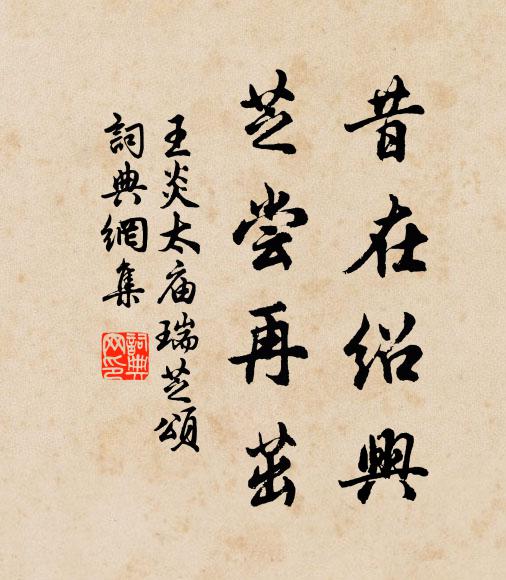 昔在绍興
芝尝再茁
王炎太庙瑞芝頌
詞典網集
詞典网印